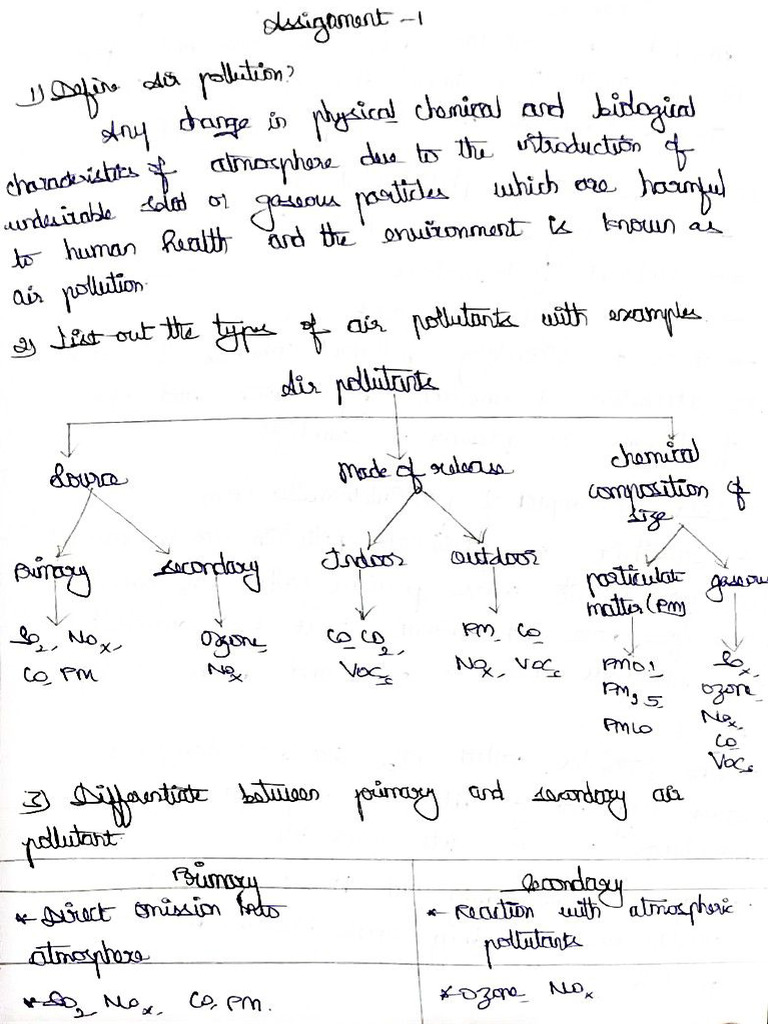 Assignment - 1
1) Define Air pollution?
Any change in physical chemical and biological
characteristics of atmosphere due to the introduction of
undesirable solid or gaseous particles which are harmful
to human health and the environment is known as
air pollution.
2) List out the types of air pollutants with examples
Air pollutants
Source Mode of release chemical composition of size
Primary secondary Indoor outdoor particulate matter (PM) gaseous
SO2, NOx, Ozone CO CO2, PM CO PM0.1 SOx,
CO, PM NOx VOCs NOx, VOCs PM2.5 Ozone,
PM10 NOx,
CO
VOCs
3) Differentiate between primary and secondary air
pollutant.
Primary Secondary
* Direct emission into * Reaction with atmospheric
atmosphere pollutants
* SO2, NOx, CO, PM. * Ozone NOx